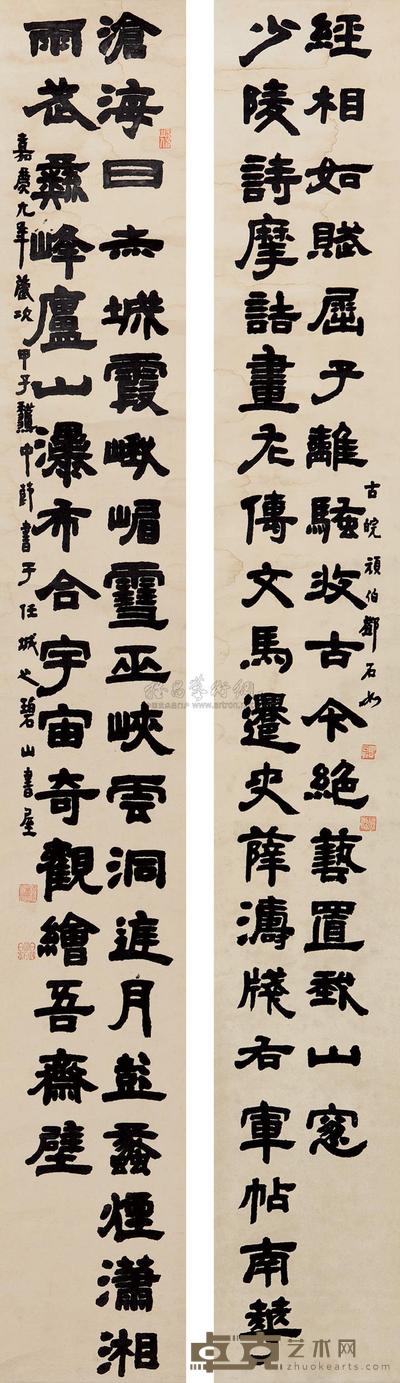 滄海日赤城霞峨嵋雪巫峽雲洞庭月彭蠡煙瀟湘
雨武彝峰廬山瀑布合宇宙奇觀繪吾齋壁
嘉慶九年歲次甲子中節書于任城之碧山書屋
少陵詩摩詰畫左傳文馬遷史薛濤牋右軍帖南華
經相如賦屈子離騷收古今絕藝置我山窗
古皖頑伯鄧石如
卓克艺术网
zhuokearts.com